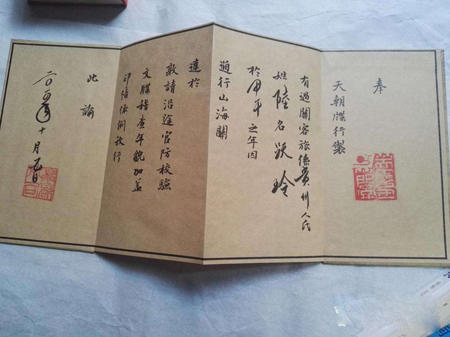 奉
天朝牒行製
有過關客旅係貴州人氏
姓陸名跃玲
於甲午之年因
通行山海關
達於
敬請沿途官防校驗
文牒稽查年貌加蓋
印信依例放行
此諭
年十月日